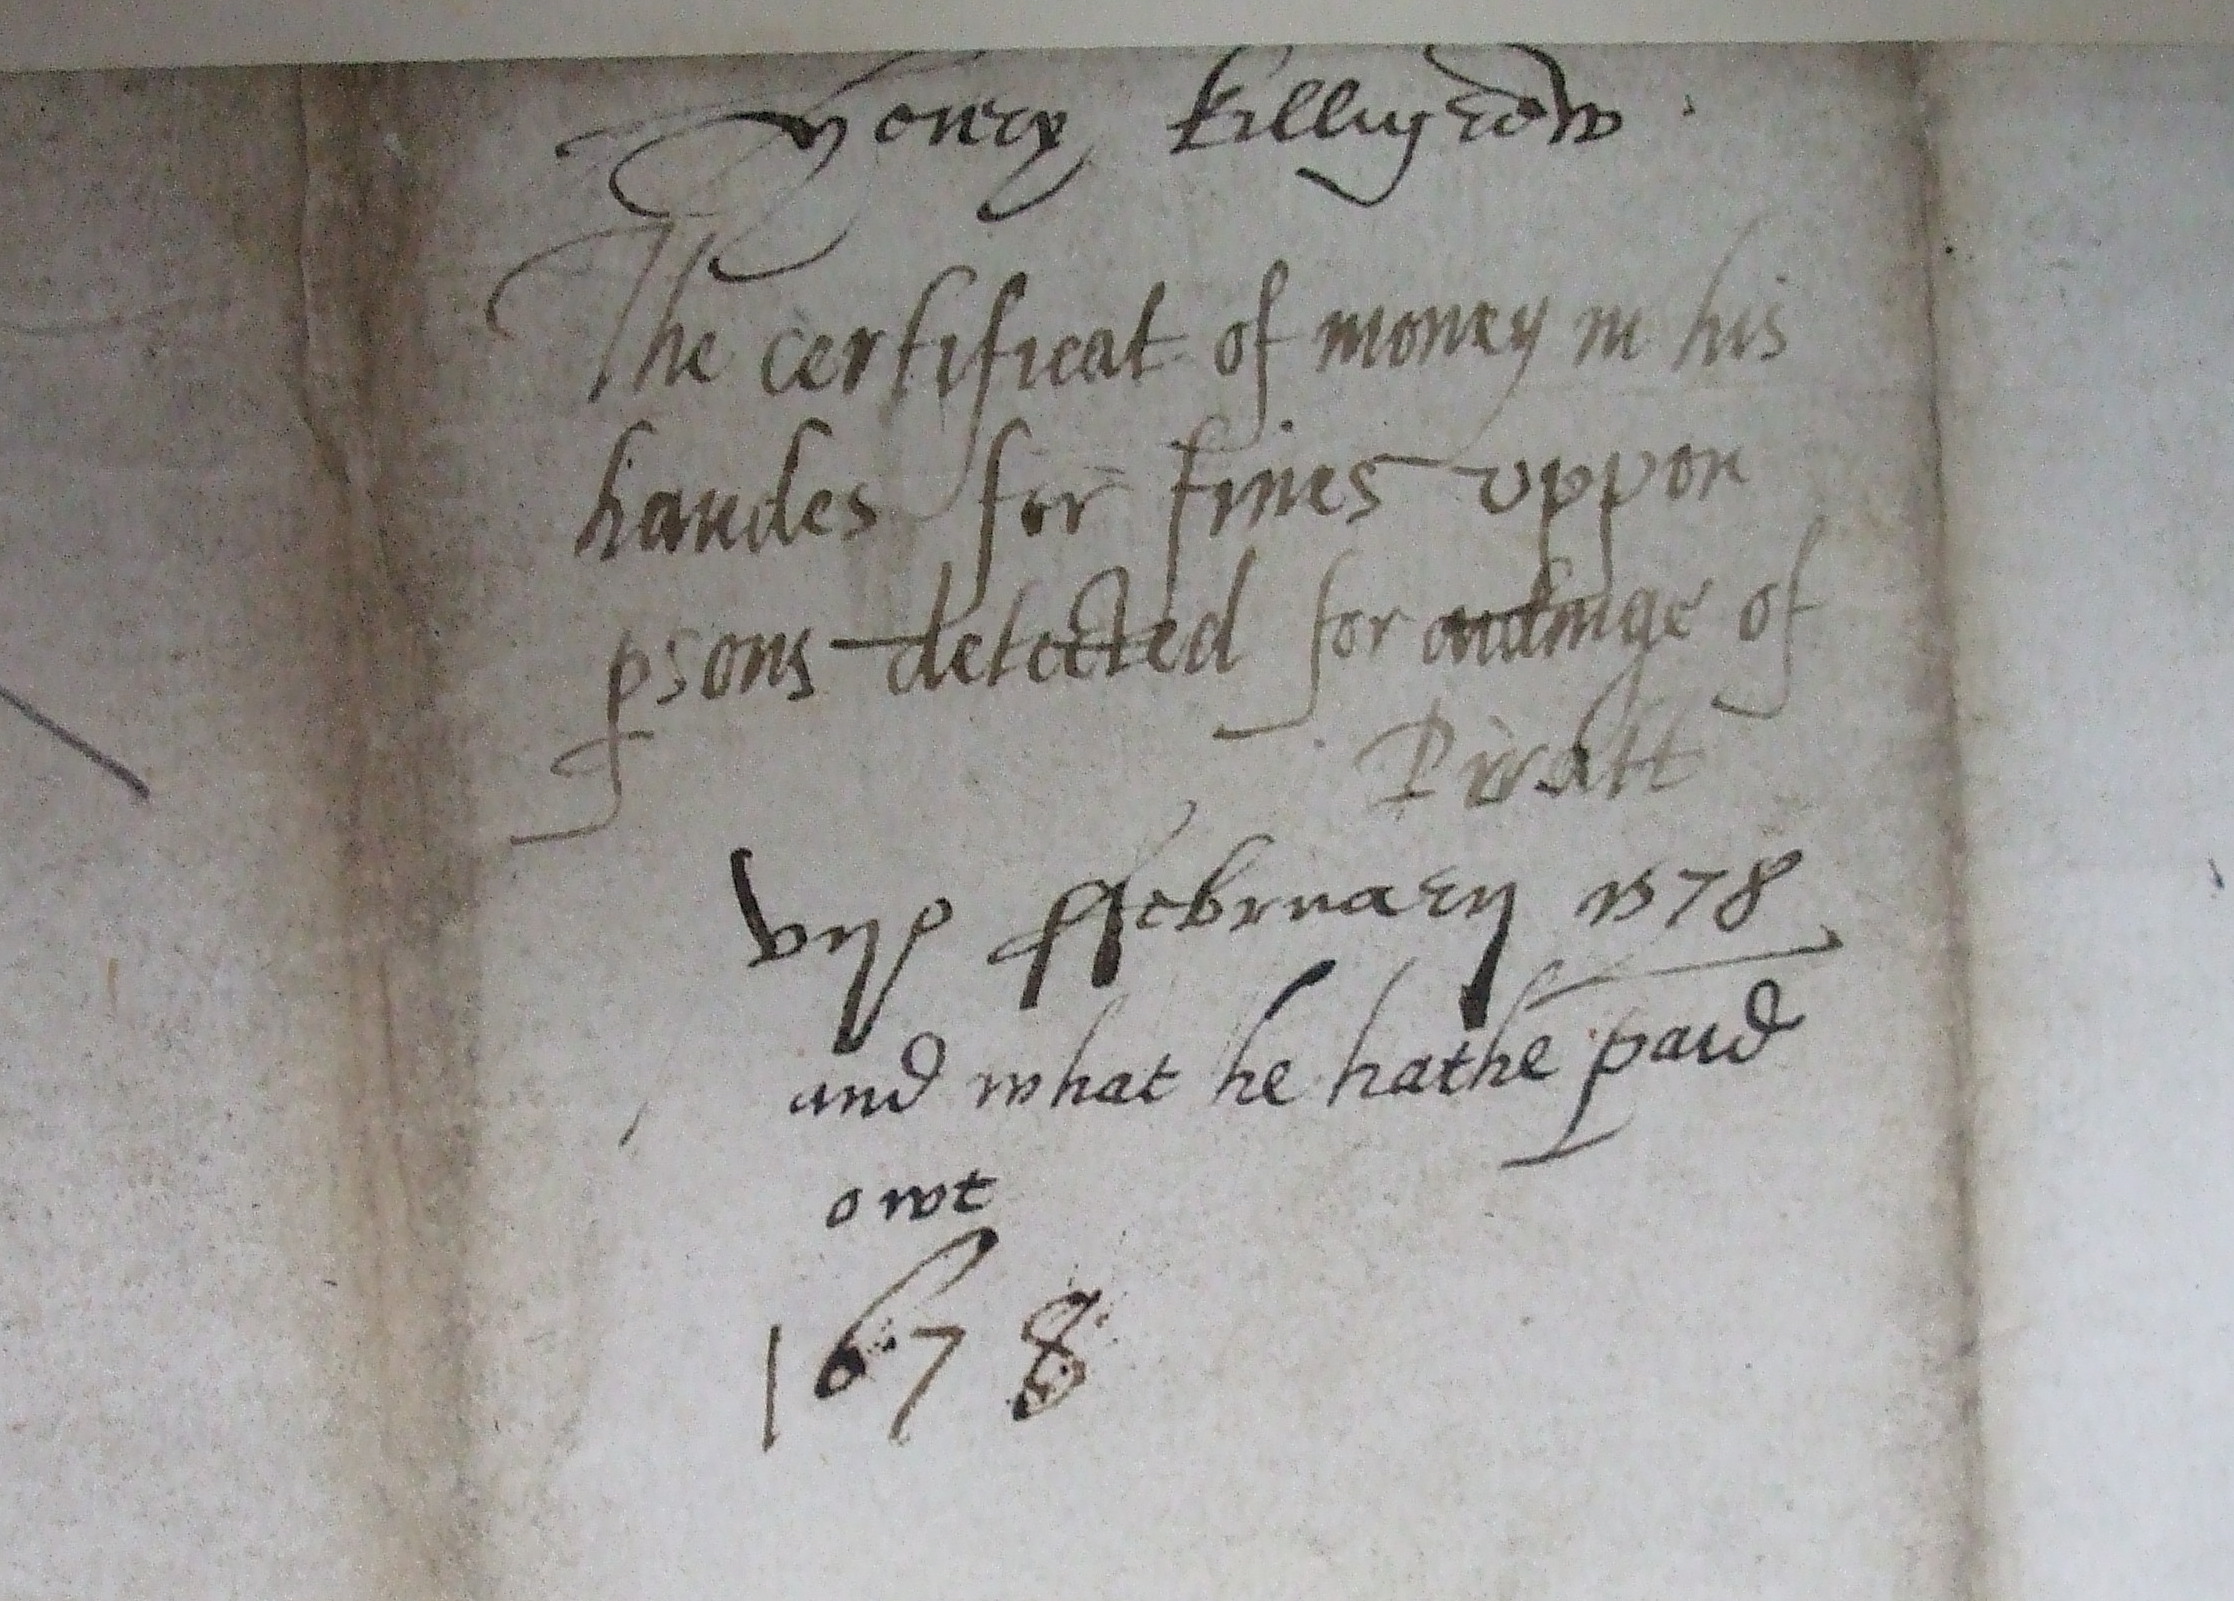 henry killygrew
The certificat of money in his
handes for fines uppon
psons detected for aidinge of
Piratt
vijo ffebruary 1578
and what he hathe paid
owt
1678